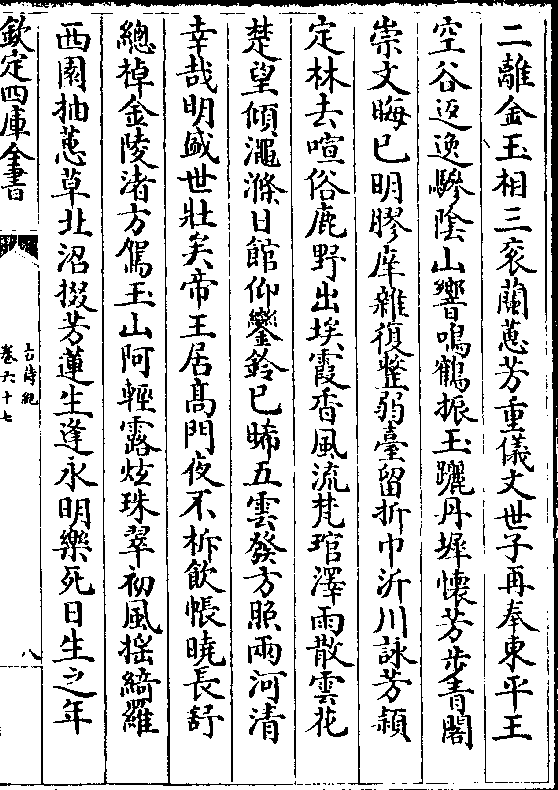 二離金玉相三衮蘭蕙芳重儀文世子再奉東平王
空谷返逸驂陰山響鳴鶴振玉躧丹墀懷芳步青閣
崇文晦已明膠庠雜復整弱臺留折巾沂川詠芳穎
定林去喧俗鹿野出埃霞香風流梵琯澤雨散雲花
楚望傾澠滌日館仰鑾鈴已晞五雲發方照兩河清
幸哉明盛世壯矣帝王居髙門夜不柝飲帳曉長舒
總棹金陵渚方駕玉山阿輕露炫珠翠初風揺綺羅
西園抽蕙草北沼掇芳蓮生逢永明樂死日生之年
欽定四庫全書
古詩紀
卷六十七
八